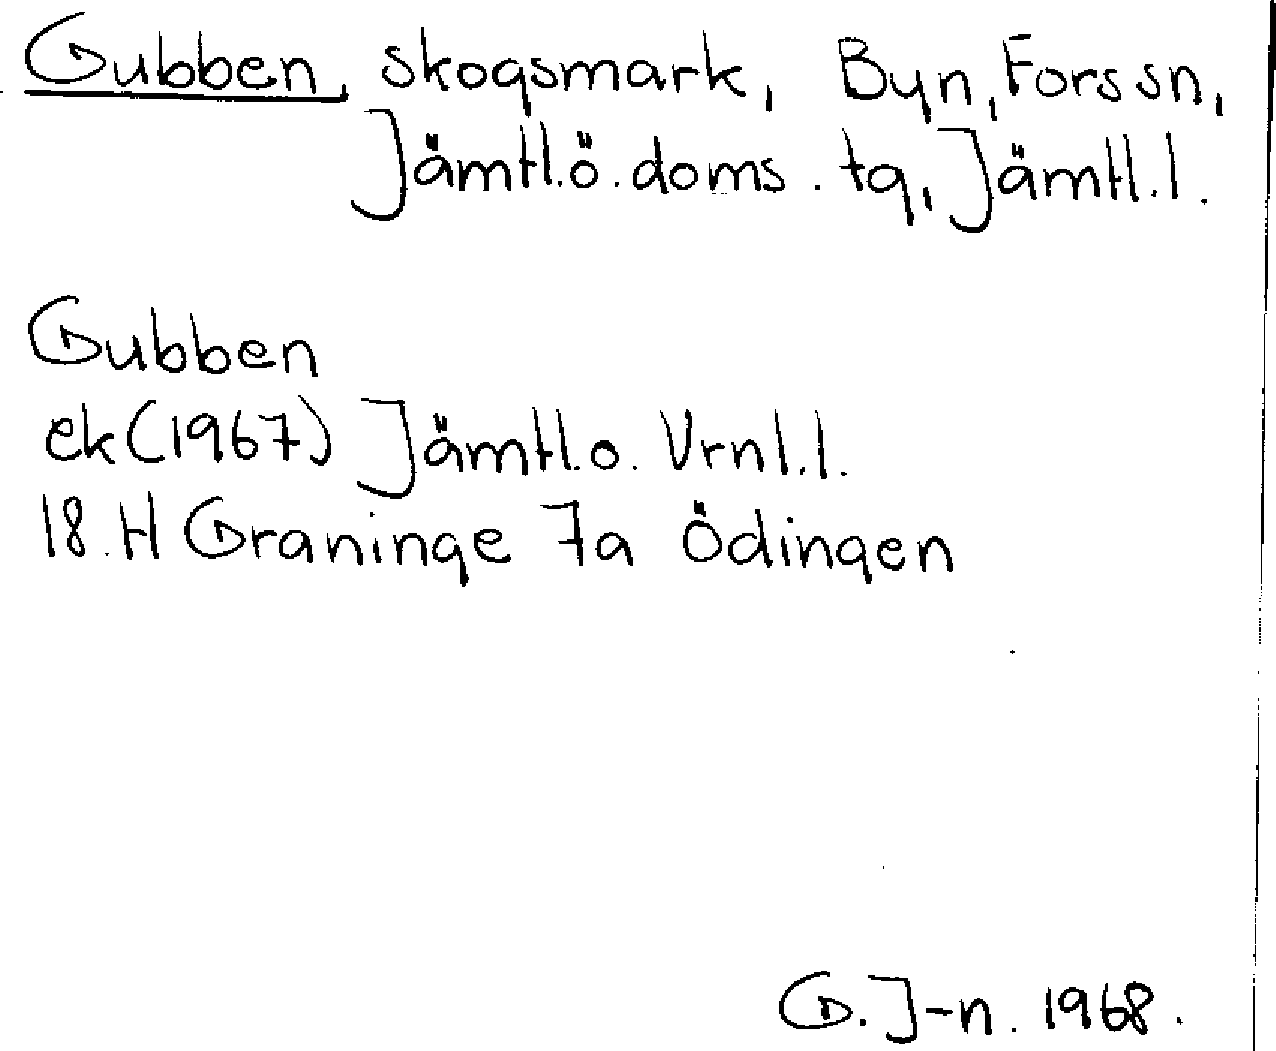 Gubben, skogsmark, Byn, Fors sn,
Jämtl.ö. doms. tg, Jämtl.l.
Gubben
ek(1967) Jämtl.o. Vrnl.l.
18.H Graninge 7a Ödingen
G. J-n. 1968.